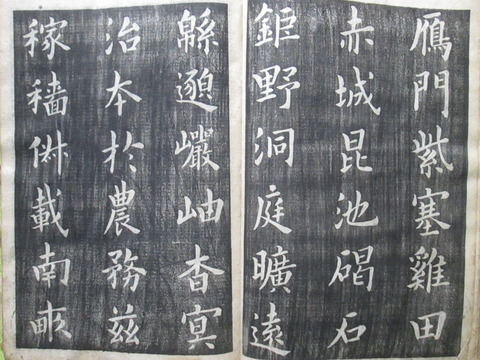 鴈門紫塞雞田
赤城昆池碣石
鉅野洞庭曠遠
緜邈巗岫杳冥
治本於農務茲
稼穡俶載南畝